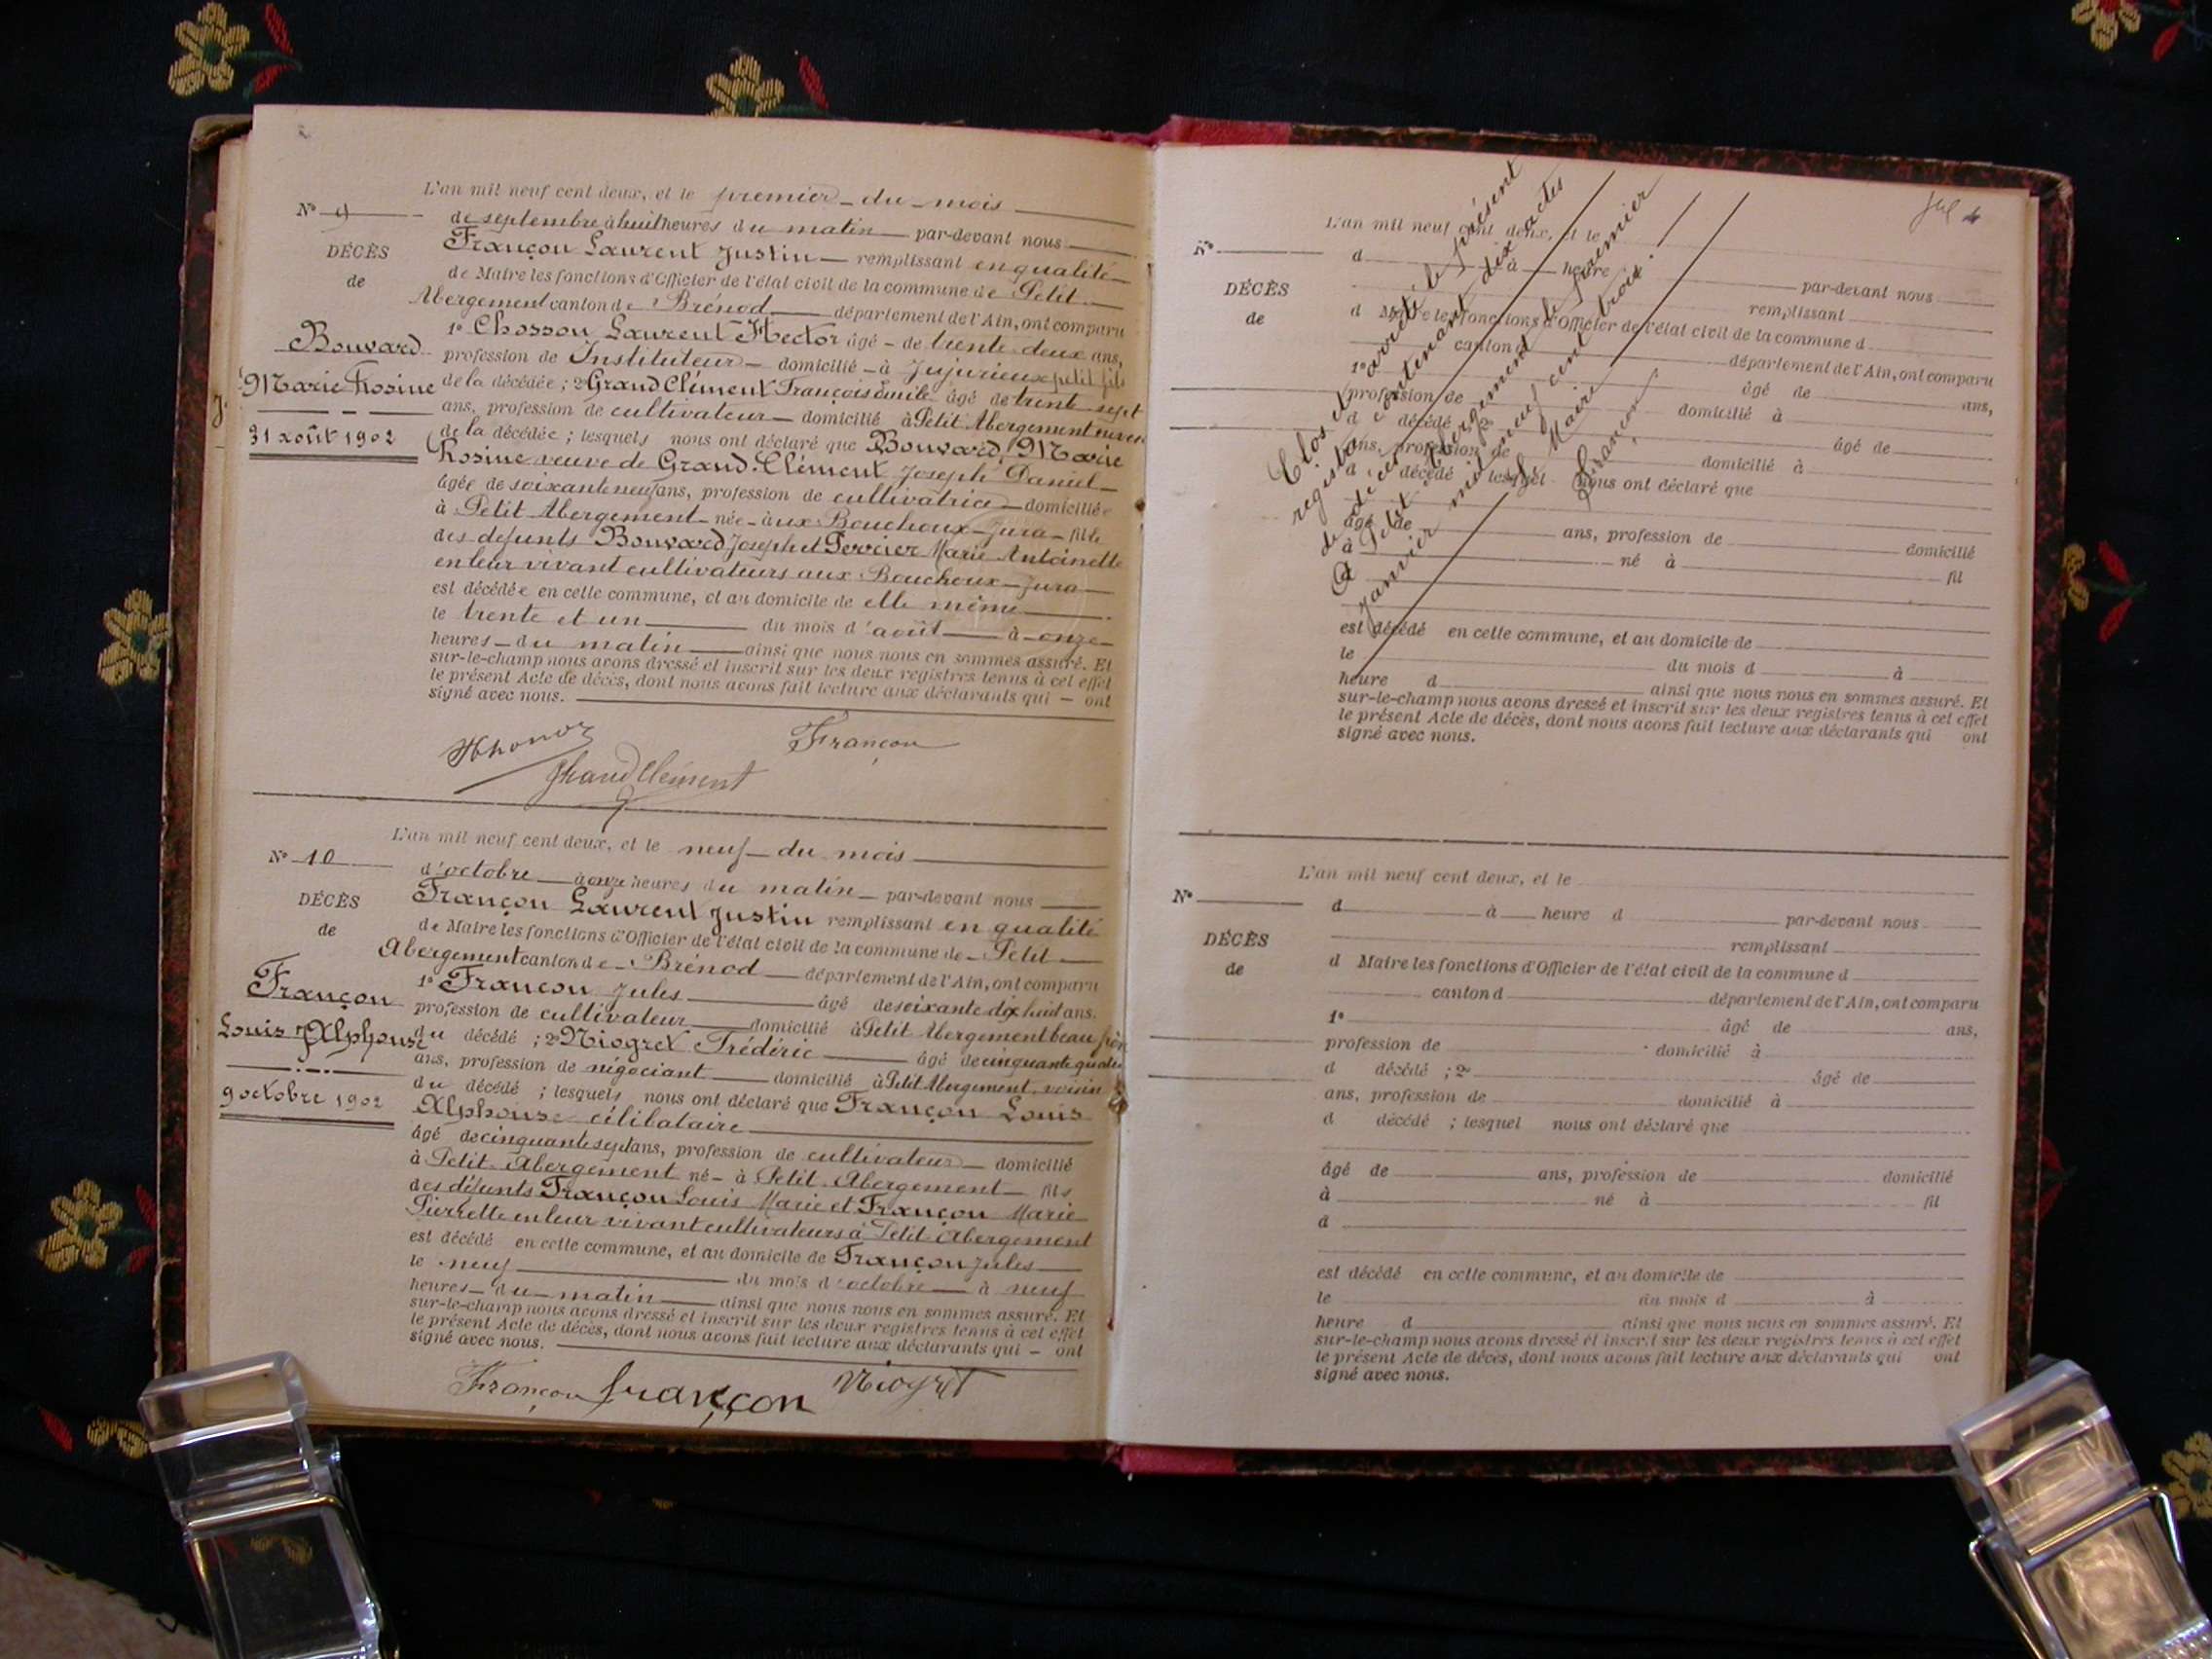 L'an mil neuf cent deux, et le premier du mois
N° 9
de septembre à huit heures du matin par-devant nous
DÉCÈS
Françon Laurent Justin remplissant en qualité
de
de Maire les fonctions d'Officier de l'état civil de la commune de Petit
Abergement canton de Brénod département de l'Ain, ont comparu
1° Chosson Laurent Hector âgé de trente deux ans,
Bouvard
profession de Instituteur domicilié à Jujurieux petit fils
Marie Rosine
de la décédée ; 2° Grand Clément François Émile âgé de trente sept
ans, profession de cultivateur domicilié à Petit Abergement neveu
31 août 1902
de la décédée ; lesquels nous ont déclaré que Bouvard Marie
Rosine veuve de Grand-Clément Joseph Daniel
âgée de soixante neuf ans, profession de cultivatrice domiciliée
à Petit Abergement née aux Bouchoux Jura fille
des défunts Bouvard Joseph et Perrier Marie Antoinette
en leur vivant cultivateurs aux Bouchoux Jura
est décédée en cette commune, et au domicile de elle même
le trente et un du mois d'août à onze
heures du matin ainsi que nous nous en sommes assuré. Et
sur-le-champ nous avons dressé et inscrit sur les deux registres tenus à cet effet
le présent Acte de décès, dont nous avons fait lecture aux déclarants qui ont
signé avec nous.
Françon
Grand Clément
L'an mil neuf cent deux, et le neuf du mois
N° 10
d'octobre à onze heures du matin par-devant nous
DÉCÈS
Françon Laurent Justin remplissant en qualité
de
de Maire les fonctions d'Officier de l'état civil de la commune de Petit
Abergement canton de Brénod département de l'Ain, ont comparu
1° Françon Jules âgé de soixante dix huit ans.
Françon
profession de cultivateur domicilié à Petit Abergement beau frère
Louis Alphonse
du décédé ; 2° Niogret Frédéric âgé de cinquante quatre
ans, profession de négociant domicilié à Petit Abergement, voisin
9 octobre 1902
du décédé ; lesquels nous ont déclaré que Françon Louis
Alphonse célibataire
âgé de cinquante sept ans, profession de cultivateur domicilié
à Petit Abergement né à Petit Abergement fils
des défunts Françon Louis Marie et Françon Marie
Pierrette en leur vivant cultivateurs à Petit Abergement
est décédé en cette commune, et au domicile de Françon Jules
le neuf du mois d'octobre à neuf
heures du matin ainsi que nous nous en sommes assuré. Et
sur-le-champ nous avons dressé et inscrit sur les deux registres tenus à cet effet
le présent Acte de décès, dont nous avons fait lecture aux déclarants qui ont
signé avec nous.
Françon françon Niogret
Clos et arrêté le présent
registre contenant dix actes
de décès
à Petit Abergement le premier
janvier mil neuf cent trois
Le Maire
Françon
L'an mil neuf cent deux, et le
N°
d à heure
par-devant nous
DÉCÈS
remplissant
de
d Maire les fonctions d'Officier de l'état civil de la commune d
canton d département de l'Ain, ont comparu
1° âgé de ans,
profession de domicilié à
d décédé ; 2° âgé de
ans, profession de domicilié à
d décédé ; lesquel nous ont déclaré que
âgé de ans, profession de domicilié
à né à fil
d
est décédé en cette commune, et au domicile de
le du mois d à
heure d ainsi que nous nous en sommes assuré. Et
sur-le-champ nous avons dressé et inscrit sur les deux registres tenus à cet effet
le présent Acte de décès, dont nous avons fait lecture aux déclarants qui ont
signé avec nous.
L'an mil neuf cent deux, et le
N°
d à heure d par-devant nous
DÉCÈS
remplissant
de
d Maire les fonctions d'Officier de l'état civil de la commune d
canton d département de l'Ain, ont comparu
1° âgé de ans,
profession de domicilié à
d décédé ; 2° âgé de
ans, profession de domicilié à
d décédé ; lesquel nous ont déclaré que
âgé de ans, profession de domicilié
à né à fil
d
est décédé en cette commune, et au domicile de
le du mois d à
heure d ainsi que nous nous en sommes assuré. Et
sur-le-champ nous avons dressé et inscrit sur les deux registres tenus à cet effet
le présent Acte de décès, dont nous avons fait lecture aux déclarants qui ont
signé avec nous.